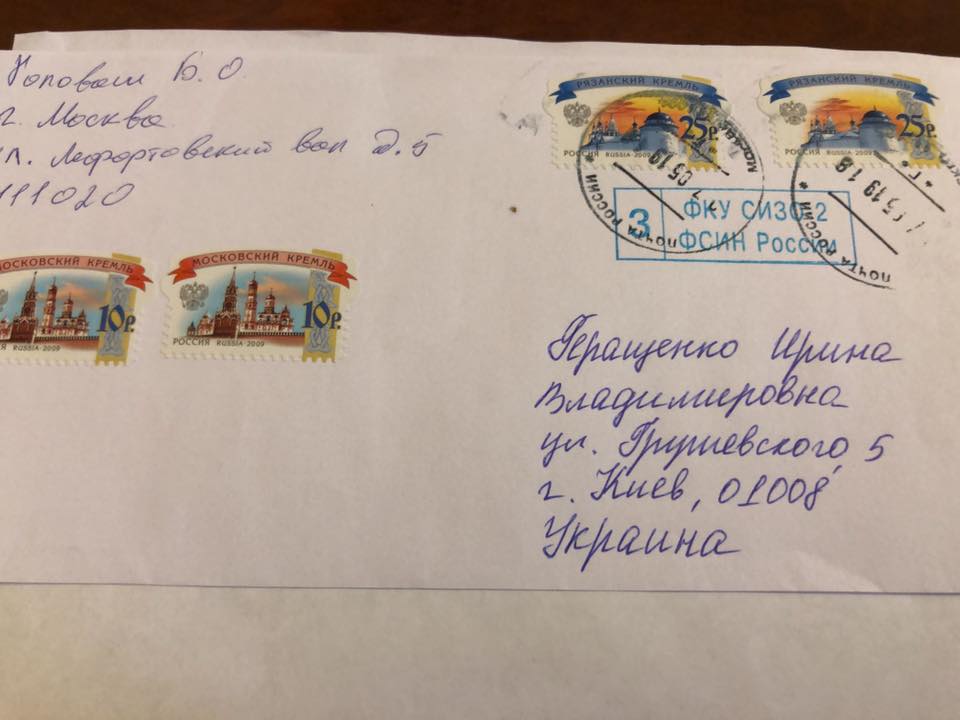 Б. О.
г. Москва
ул. Лефортовский вал д. 5
111020
РЯЗАНСКИЙ КРЕМЛЬ
25р.
РОССИЯ RUSSIA·2009
РЯЗАНСКИЙ КРЕМЛЬ
25р.
РОССИЯ RUSSIA·2009
ПОЧТА РОССИИ
05 19
ПОЧТА РОССИИ
05 19 18
3
ФКУ СИЗО-2
ФСИН России
МОСКОВСКИЙ КРЕМЛЬ
10р.
РОССИЯ RUSSIA·2009
МОСКОВСКИЙ КРЕМЛЬ
10р.
РОССИЯ RUSSIA·2009
Геращенко Ирина
Владимировна
ул. Грушевского 5
г. Киев, 01008
Украина